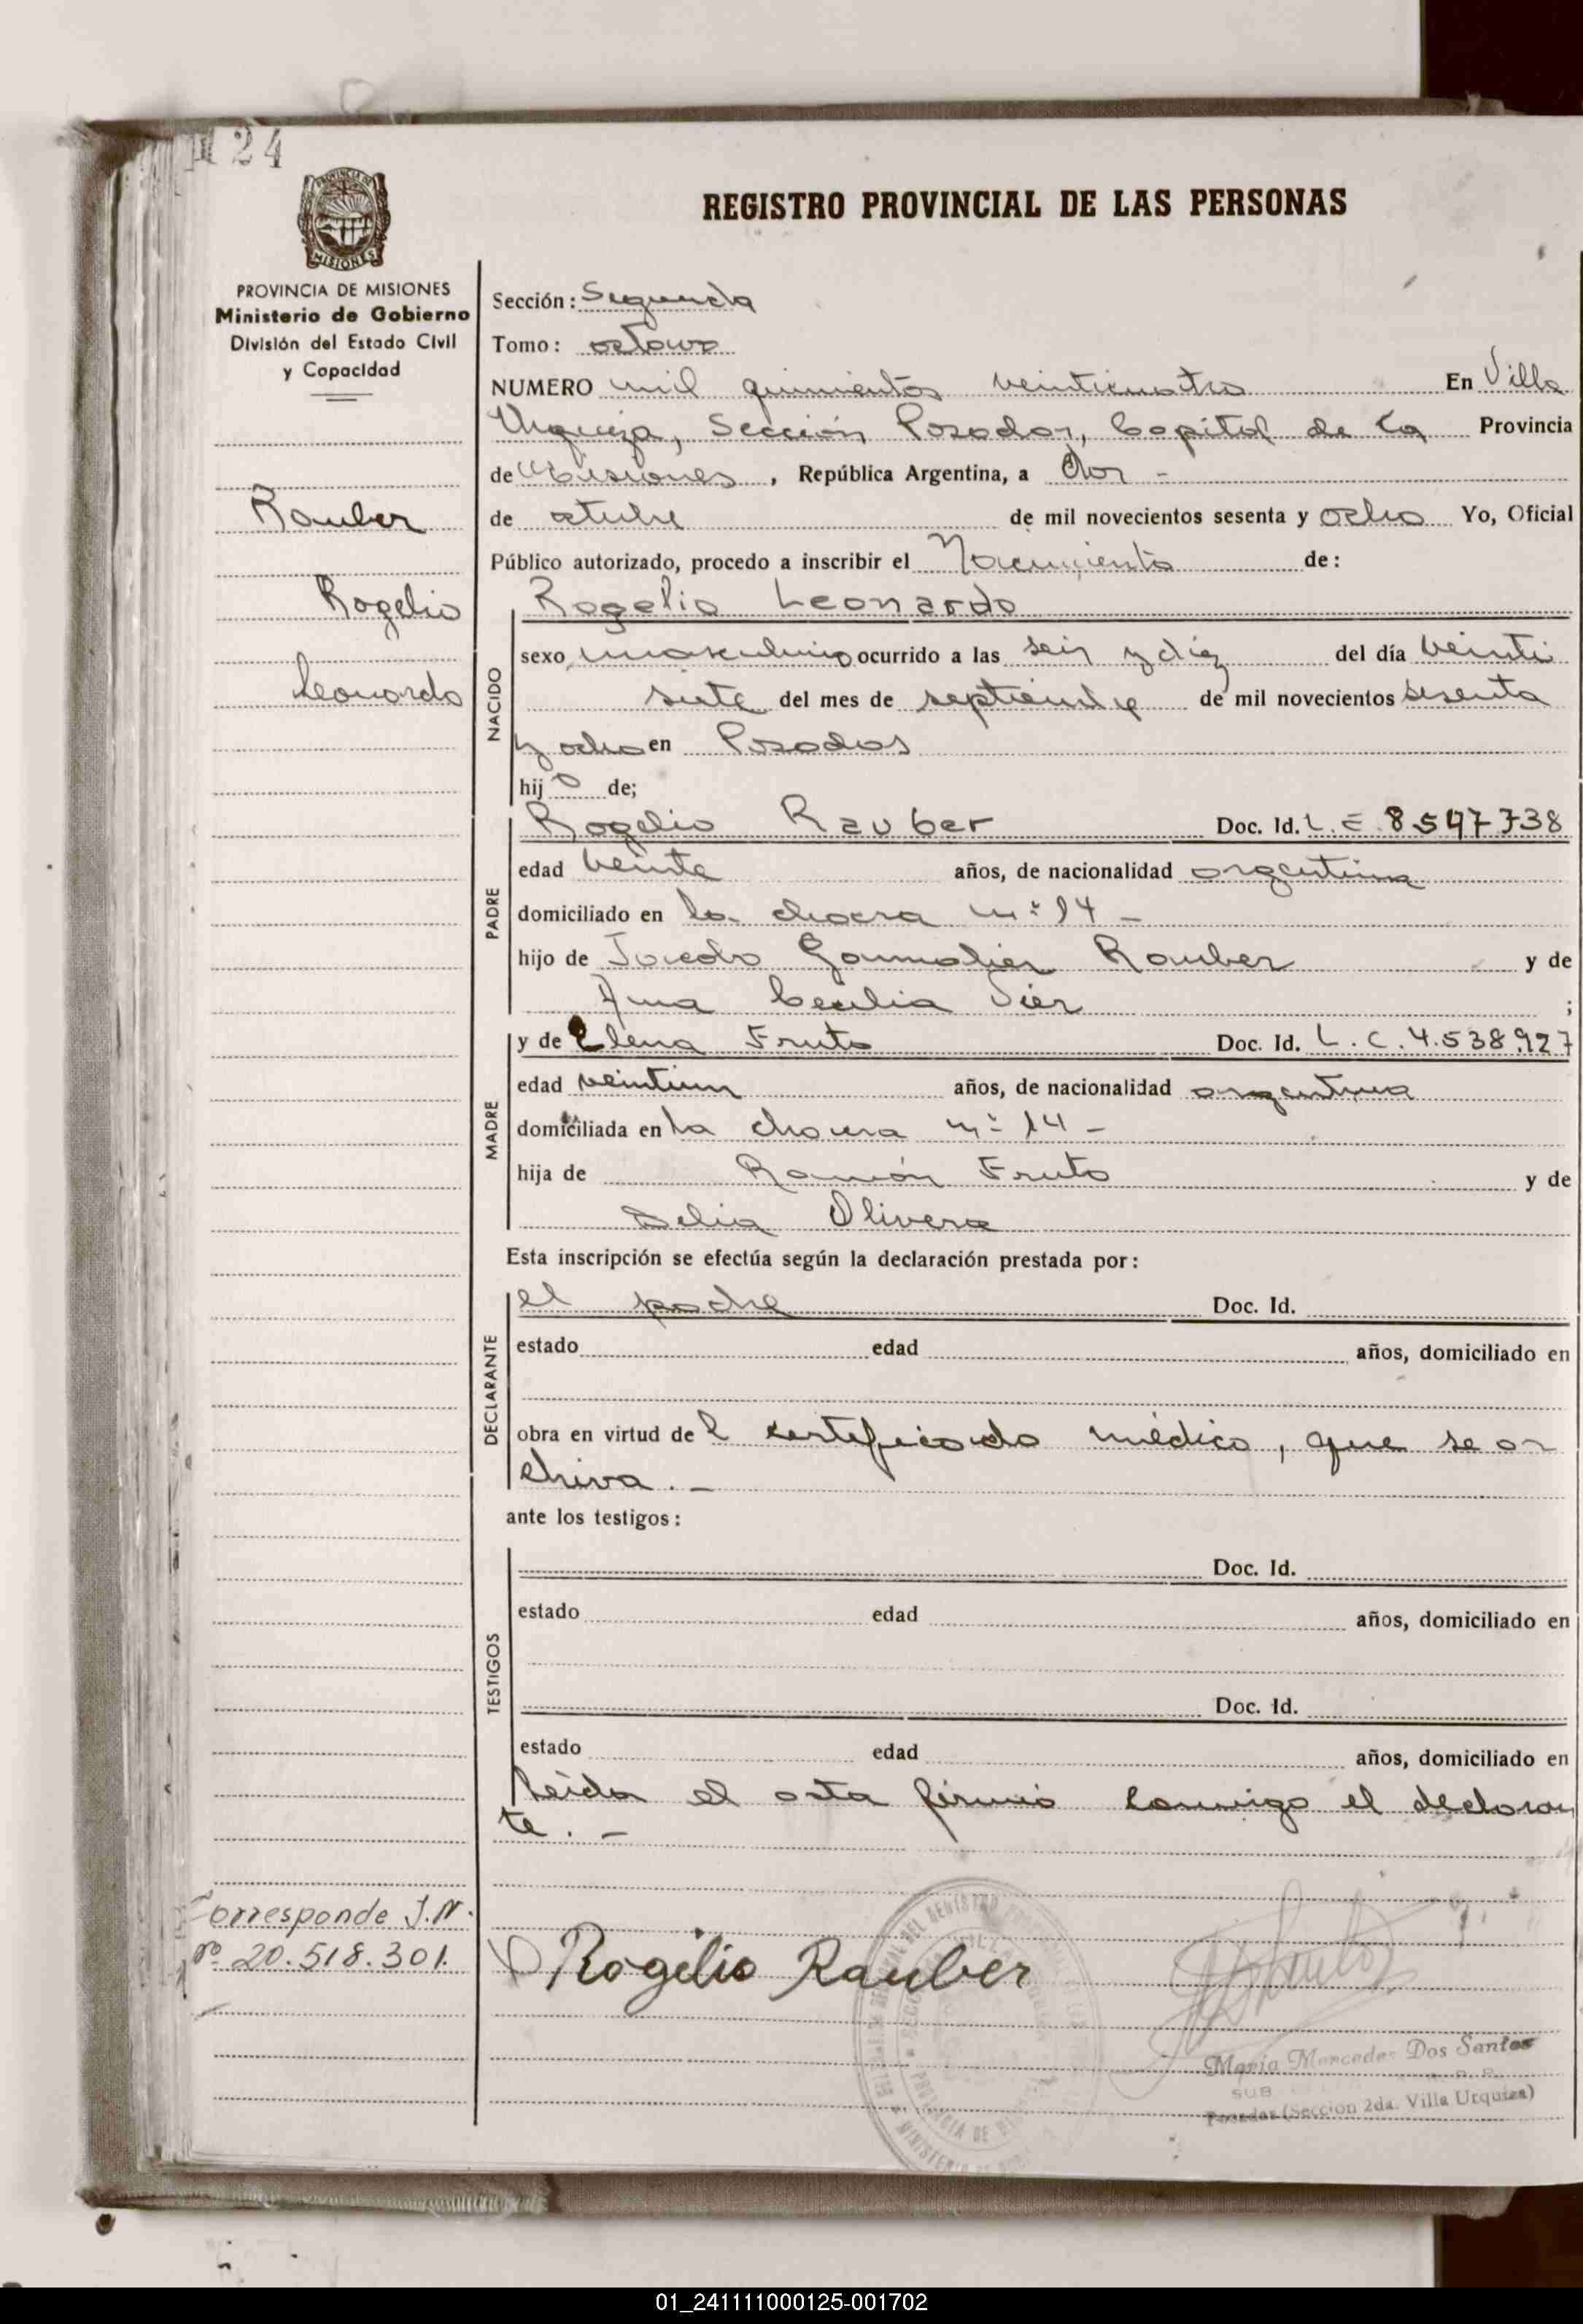 24
REGISTRO PROVINCIAL DE LAS PERSONAS
PROVINCIA DE MISIONES
MISIONES
PROVINCIA DE MISIONES
Ministerio de Gobierno
División del Estado Civil
y Capacidad
Rauber
Rogelio
Leonardo
Sección: Segunda
Tomo: octavo
NUMERO mil quinientos veinticuatro En Villa
Urquiza, Sección Posadas, Capital de la Provincia
de Misiones, República Argentina, a dos -
de octubre de mil novecientos sesenta y ocho Yo, Oficial
Público autorizado, procedo a inscribir el Nacimiento de:
NACIDO
Rogelio Leonardo
sexo masculino ocurrido a las seis y diez del día veinti
siete del mes de septiembre de mil novecientos sesenta
y ocho en Posadas
hijo de;
PADRE
Rogelio Rauber Doc. Id. L.E 8547738
edad veinte años, de nacionalidad argentina
domiciliado en la chacra nº 14 -
hijo de Rauber y de
Ana Cecilia ;
MADRE
y de Elena Fruto Doc. Id. L.C.4.538.927
edad veintiun años, de nacionalidad argentina
domiciliada en la chacra nº 14 -
hija de Ramón Fruto y de
Delia Olivera
Esta inscripción se efectúa según la declaración prestada por:
DECLARANTE
el padre Doc. Id.
estado edad años, domiciliado en
obra en virtud del certificado médico, que se ar
chiva. -
ante los testigos:
TESTIGOS
Doc. Id.
estado edad años, domiciliado en
Doc. Id.
estado edad años, domiciliado en
Leída el acta firmó conmigo el declaran
te. -
Corresponde I.N.
Nº 20.518.301.
Rogelio Rauber
Maria Mercedes Dos Santos
SUB
Posadas (Sección 2da. Villa Urquiza)
01_241111000125-001702